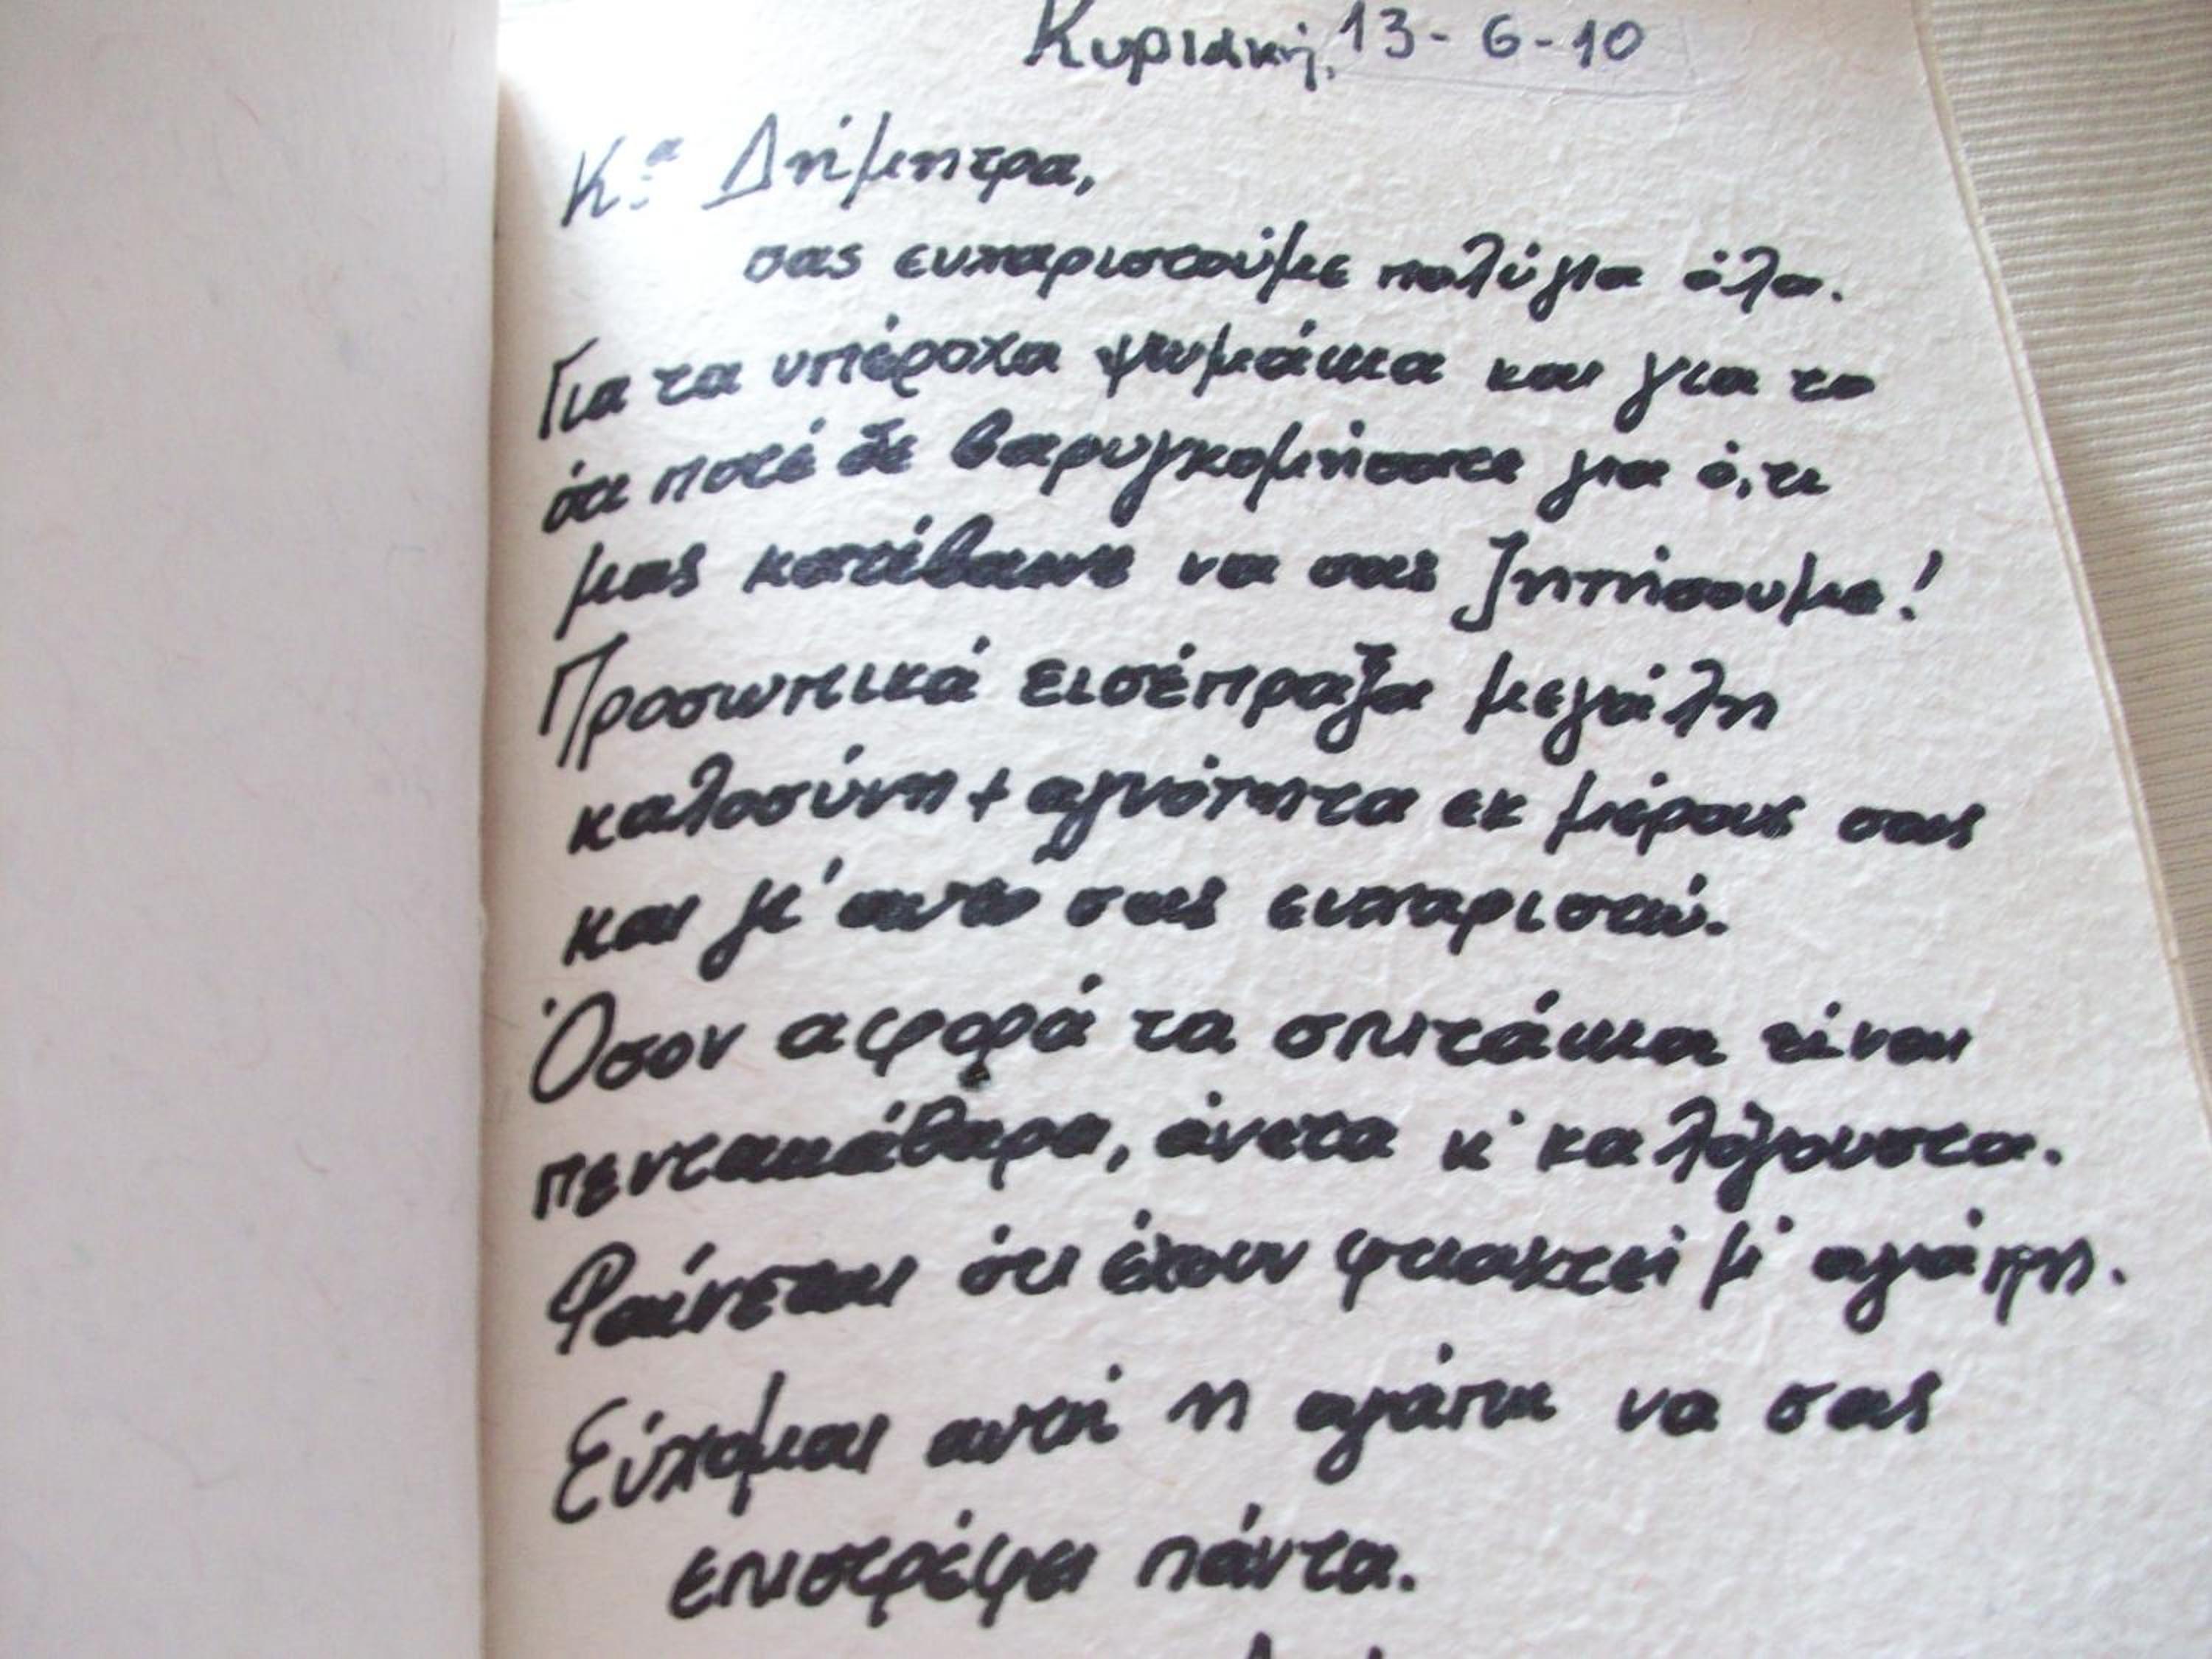 Κυριακή, 13-6-10
Κ.α Δήμητρα,
σας ευχαριστούμε πολύ για όλα.
Για τα υπέροχα ψωμάκια και για το
ότι ποτέ δε βαρυγκομήσατε για ό,τι
μας κατέβαινε να σας ζητήσουμε!
Προσωπικά εισέπραξα μεγάλη
καλοσύνη + αγνότητα εκ μέρους σας
και γι' αυτό σας ευχαριστώ.
Όσον αφορά τα σπιτάκια είναι
πεντακάθαρα, άνετα κ' καλόγουστα.
Φαίνεται ότι έχουν φτιαχτεί μ' αγάπη.
Εύχομαι αυτή η αγάπη να σας
επιστρέφει πάντα.